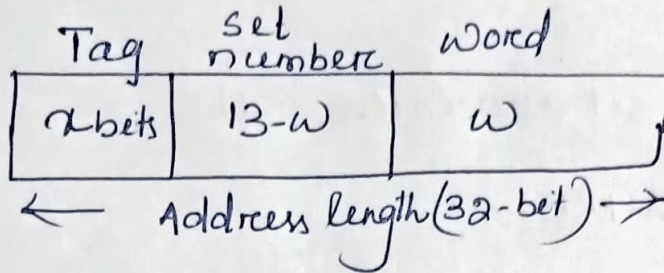 Tag set number word
x bits 13-w w
Address length (32-bit)